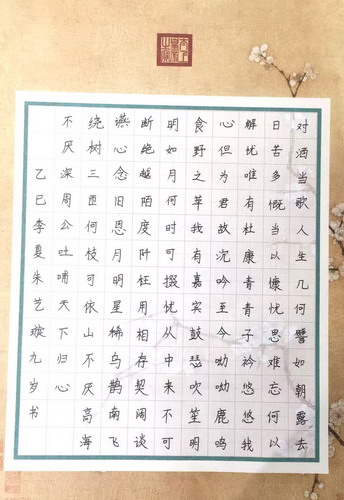 对酒当歌人生几何譬如朝露去
日苦多慨当以慷忧思难忘何以
解忧唯有杜康青青子衿悠悠我
心但为君故沉吟至今呦呦鹿鸣
食野之苹我有嘉宾鼓瑟吹笙明
明如月何时可掇忧从中来不可
断绝越陌度阡枉用相存契阔谈
䜩心念旧恩月明星稀乌鹊南飞
绕树三匝何枝可依山不厌高海
不厌深周公吐哺天下归心
乙巳季夏朱艺璇九岁书